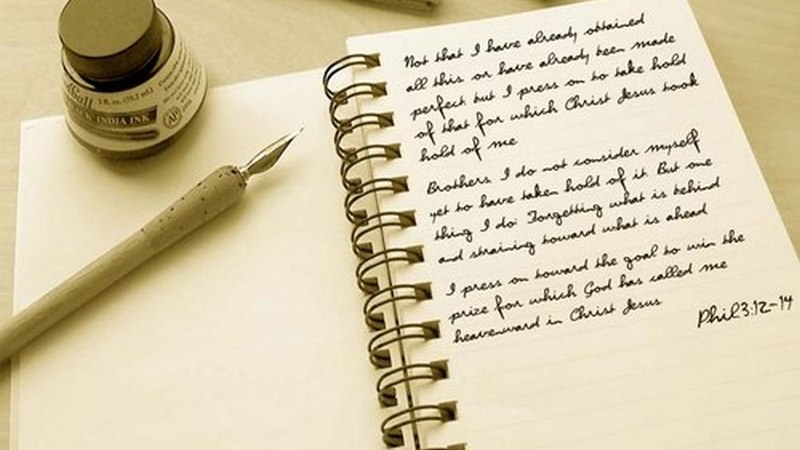 3 fl. oz. (59.2 mL)
INDIA INK
AP
Not that I have already obtained
all this or have already been made
perfect but I press on to take hold
of that for which Christ Jesus took
hold of me
Brothers I do not consider myself
yet to have taken hold of it. But one
thing I do: Forgetting what is behind
and straining toward what is ahead
I press on toward the goal to win the
prize for which God has called me
heavenward in Christ Jesus
Phil.3:12-14